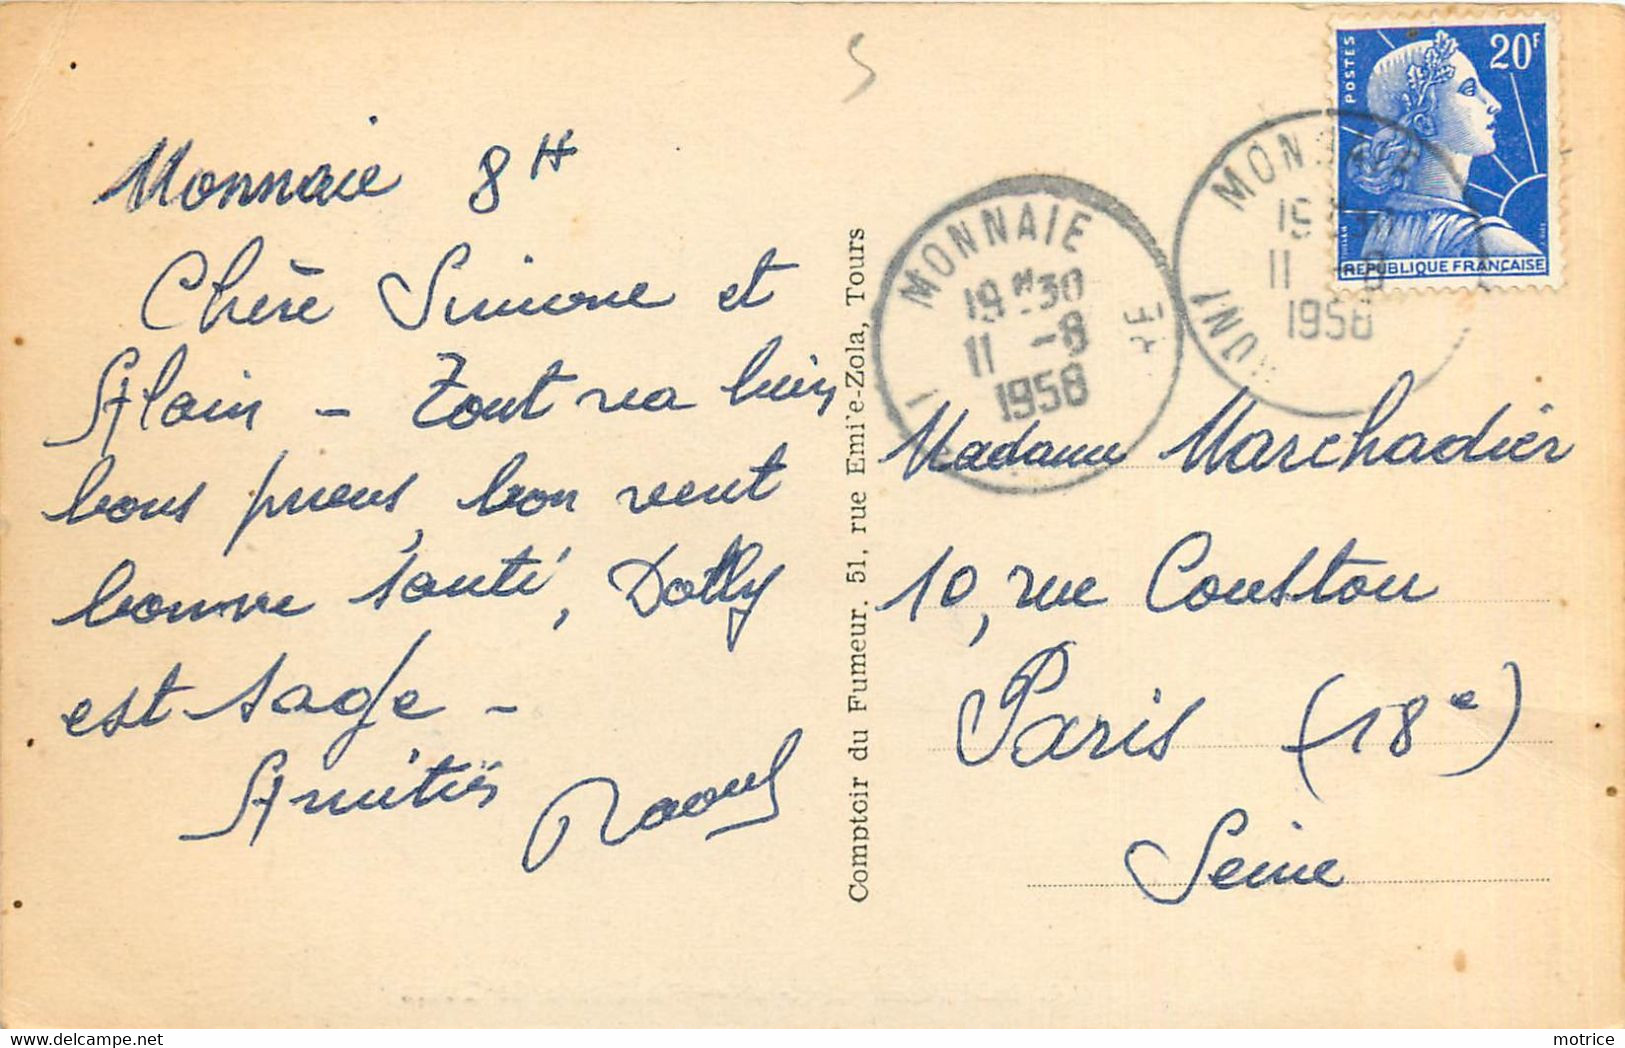 5
Monnaie 8H
Chère Simone et
Alain - Tout va bien
bons pneus, bon vent
bonne santé, Dolly
est sage -
Amitiés
Raoul
Comptoir du Fumeur. 51, rue Emi'e-Zola, Tours
MONNAIE
19H30
11 -8
1958
RE
MONNAIE
11 8
1958
POSTES
20F
REPUBLIQUE FRANÇAISE
Madame Marchadier
10, rue Coustou
Paris (18e)
Seine
https://www.delcampe.net
motrice